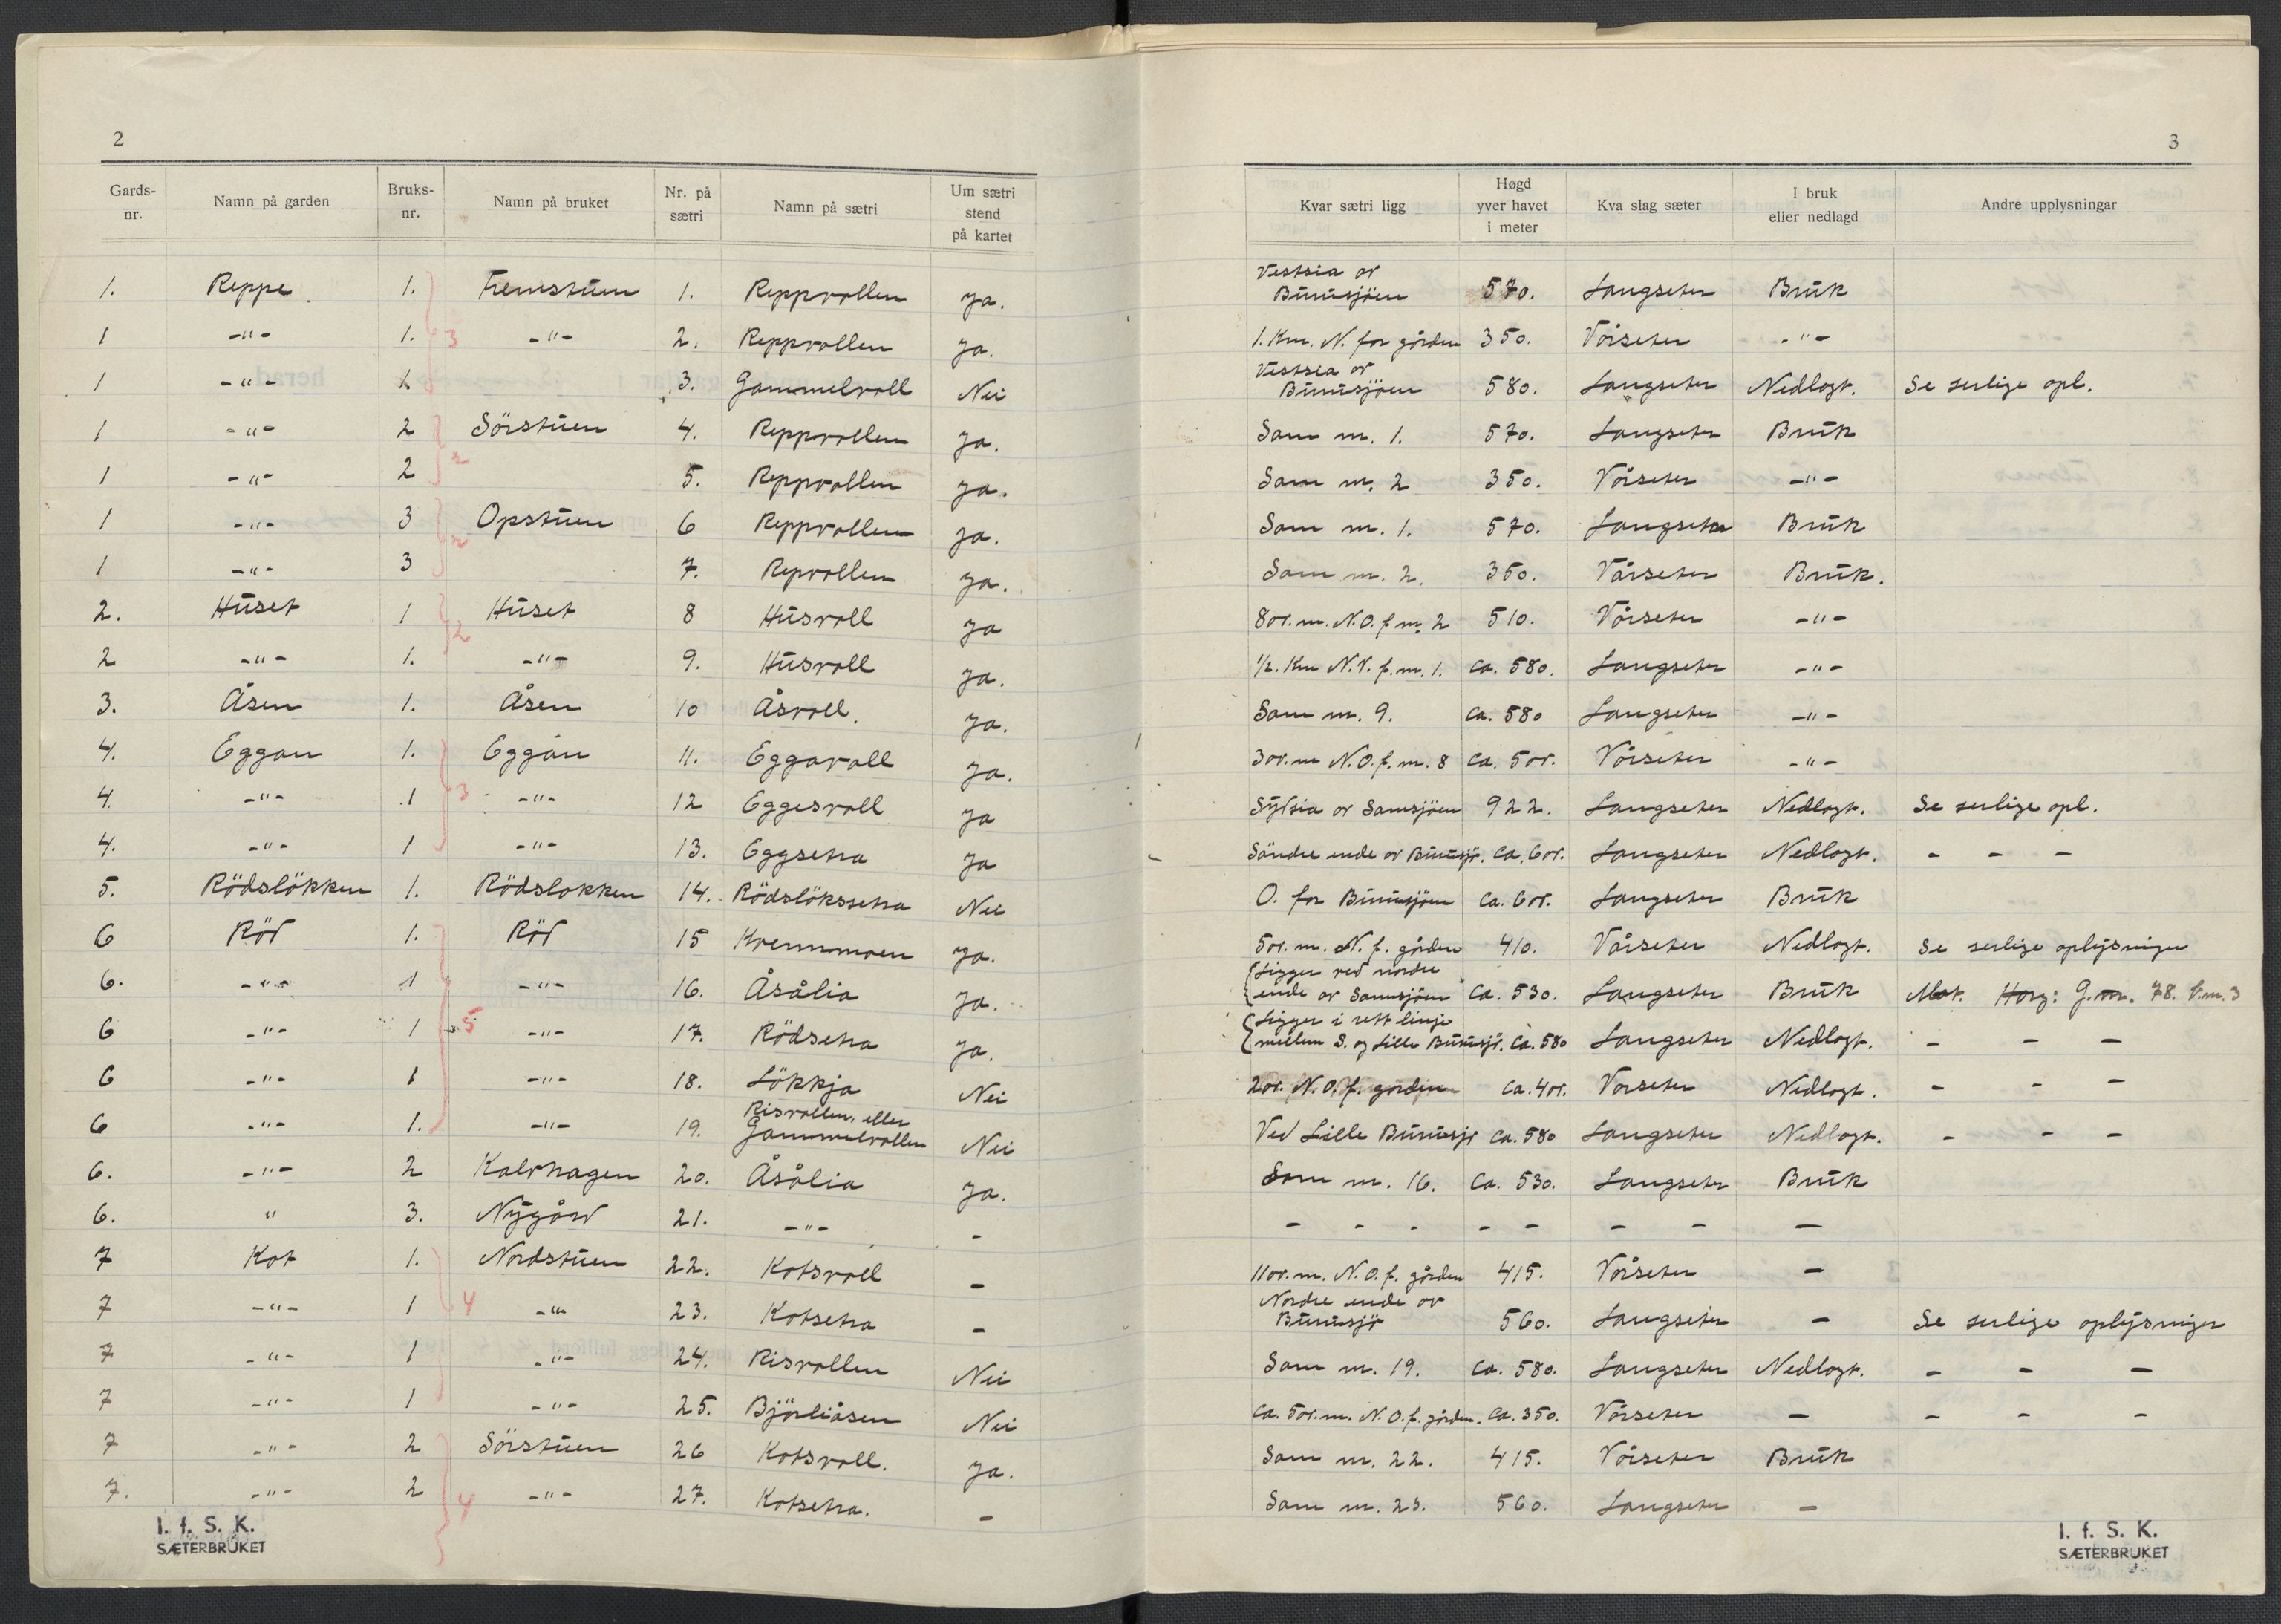 2
Gards-nr. Namn på garden Bruks-nr. Namn på bruket Nr. på sætri Namn på sætri Um sætri stend på kartet
1. Reppe 1. Fremstuen 1. Reppvollen Ja.
1 -"- 1. -"- 2. Reppvollen Ja.
1 -"- 1 3. Gammelvoll Nei
1 -"- 2 Sörstuen 4. Reppvollen Ja.
1 -"- 2 5. Reppvollen Ja.
1 -"- 3 Opstuen 6 Reppvollen Ja.
1 -"- 3 7. Repvollen Ja.
2. Huset 1 Huset 8 Husvoll Ja
2 -"- 1. -"- 9. Husvoll Ja.
3. Åsen 1. Åsen 10 Åsvoll. Ja.
4. Eggan 1. Eggan 11. Eggavoll Ja.
4. -"- 1 -"- 12 Eggesvoll Ja
4. -"- 1 -"- 13. Eggsetra Ja
5. Rödslökken 1. Rödslokken 14. Rödslökssetra Nei
6 Röd 1. Röd 15 Kvennmoen Ja.
6. -"- 1 -"- 16. Åsålia Ja.
6 -"- 1 -"- 17. Rödsetra Ja.
6 -"- 1 -"- 18. Lökkja Nei
6 -"- 1. -"- 19. Risvollen, eller Gammelvollen Nei
6. -"- 2 Kalvhagen 20. Åsålia Ja.
6. " 3. Nygård 21. -"- -
7 Kot 1. Nordstuen 22. Kotsvoll -
7 -"- 1 -"- 23. Kotsetra -
7 -"- 1 -"- 24. Risvollen Nei
7 -"- 1 -"- 25. Björliåsen Nei
7 -"- 2 Sörstuen 26 Kotsvoll. Ja.
7. -"- 2 -"- 27. Kotsetra. -
3
2
2
2
3
5
4
4
I. f. S. K.
SÆTERBRUKET
3
Kvar sætri ligg Høgd yver havet i meter Kva slag sæter I bruk eller nedlagd Andre upplysningar
Vestsia av Burusjöen 570. Langseter Bruk
1. Km. N. for gården 350. Vårseter -"-
Vestsia av Burusjöen 580. Langseter Nedlagt. Se serlige opl.
Som nr. 1. 570. Langseter Bruk
Som nr. 2 350. Vårseter -"-
Som nr. 1. 570. Langseter Bruk
Som nr. 2. 350. Vårseter Bruk.
800. m. N.O. f. nr. 2 510. Vårseter -"-
1/2. Km N.V. f. nr. 1. ca. 580. Langseter -"-
Som nr. 9. ca. 580 Langseter -"-
300. m N.O. f. nr. 8 ca. 500. Vårseter -"-
Sydsia av Samsjöen 922. Langseter Nedlagt. Se serlige opl.
Söndre ende av Burusjö. ca. 600. Langseter Nedlagt. - - -
O. for Burusjöen ca. 600. Langseter Bruk
500. m. N. f. gården 410. Vårseter Nedlagt. Se serlige oplysninger
Ligger ved nordre ende av Samsjöen ca. 530. Langseter Bruk Mat. Horg: G.nr. 78. b.nr. 3
Ligger i rett linje mellem S. og Lille Burusjö. ca. 580 Langseter Nedlagt. - - -
200. N.O. f. gården ca. 400. Vorseter Nedlagt. - - -
Ved Lille Burusjö ca. 580 Langseter Nedlagt. - - -
Som nr. 16. ca. 530. Langseter Bruk
- - - - - - - -
1100. m. N.O. f. gården 415. Vårseter -
Nordre ende av Burusjö 560. Langseter - Se serlige oplysninger
Som nr. 19. ca. 580. Langseter Nedlagt. - - -
ca. 500. m. N.O. f. gården. ca. 350. Vårseter - - - -
Som nr. 22. 415. Vårseter Bruk
Som nr. 23. 560. Langseter -
I. f. S. K.
SÆTERBRUKET